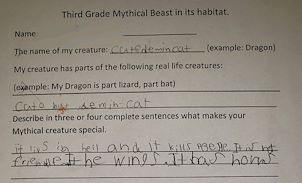 Third Grade Mythical Beast in its habitat.
Name:
The name of my creature: cutedemincat (example: Dragon)
My creature has parts of the following real life creatures:
(example: My Dragon is part lizard, part bat)
Cato but demin-cat
Describe in three or four complete sentences what makes your
Mythical creature special.
It livs in hell and it kills It is not
It he wines. It has horns